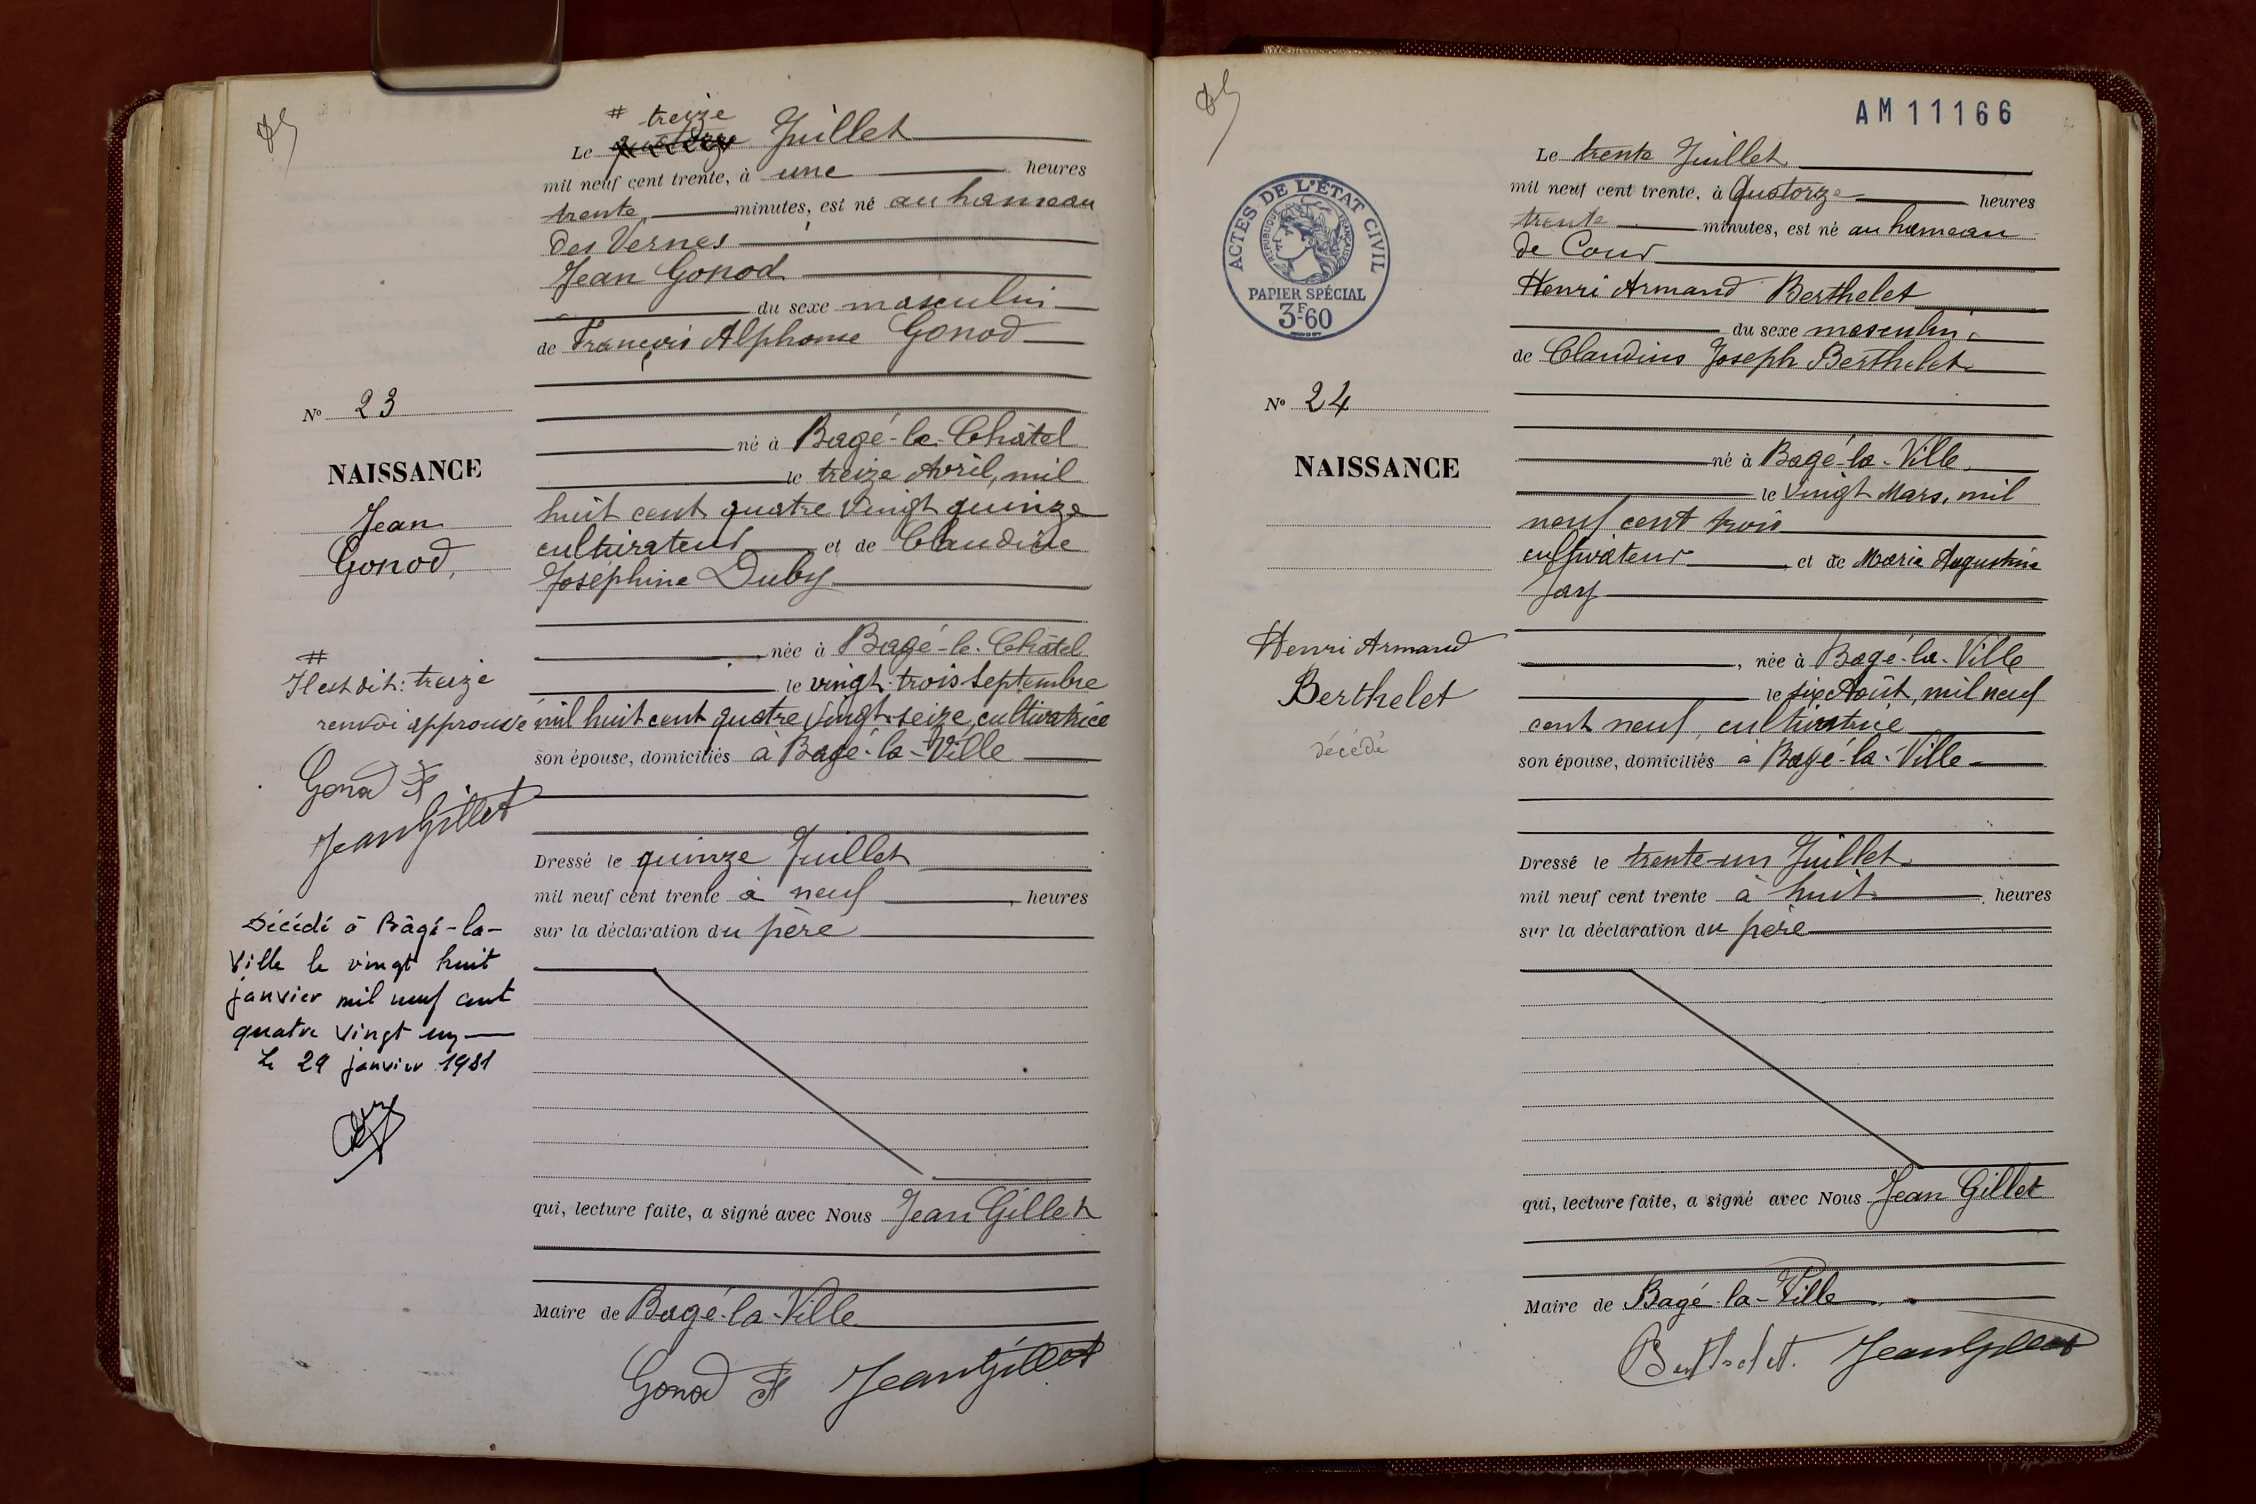 # treize
Le quatorze Juillet
mil neuf cent trente, à une heures
trente minutes, est né au hameau
des Vernes
Jean Gonod
du sexe masculin
de François Alphonse Gonod
né à Bagé-le-Châtel
le treize Avril, mil
huit cent quatre vingt quinze
cultivateur et de Claudine
Joséphine Duby
née à Bagé-le-Châtel
le vingt-trois Septembre
mil huit cent quatre vingt-seize, cultivatrice
son épouse, domiciliés à Bagé-la-Ville
Dressé le quinze Juillet
mil neuf cent trente à neuf heures
sur la déclaration du père
qui, lecture faite, a signé avec Nous Jean Gillet
Maire de Bagé-la-Ville
Gonod F Jean Gillet
No 23
NAISSANCE
Jean
Gonod,
#
Il est dit: treize
renvoi approuvé
Gonod F
Jean Gillet
Décédé à Bâgé-la-
Ville le vingt huit
janvier mil neuf cent
quatre vingt un
Le 29 janvier 1981
AM11166
Le trente Juillet
mil neuf cent trente, à Quatorze heures
trente minutes, est né au hameau
de Cour
Henri Armand Berthelet
du sexe masculin
de Claudius Joseph Berthelet
né à Bagé-la-Ville
le vingt Mars, mil
neuf cent trois
cultivateur et de Marie Augustine
Jay
, née à Bagé-la-Ville
le six Août, mil neuf
cent neuf, cultivatrice
son épouse, domiciliés à Bagé-la-Ville
Dressé le trente-un Juillet
mil neuf cent trente à huit heures
sur la déclaration du père
qui, lecture faite, a signé avec Nous Jean Gillet
Maire de Bagé-la-Ville
Berthelet. Jean Gillet
ACTES DE L'ÉTAT CIVIL
RÉPUBLIQUE FRANÇAISE
PAPIER SPÉCIAL
3F60
No 24
NAISSANCE
Henri Armand
Berthelet
décédé